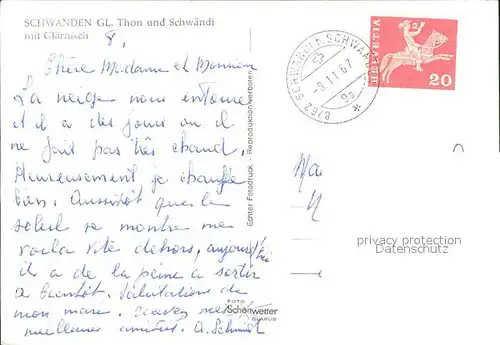 SCHWANDEN GL. Thon und Schwändi
mit Glärnisch
8.
Chère Madame et Monsieur
La neige nous entoure
et il a des jours ou il
ne fait pas très chaud.
Heureusement je chauffe
bien. Aussitôt que le
soleil se montre me
voila vite dehors, aujourd'hui
il a de la peine a sortir
a bientôt. Salutations de
mon mari. Recevez mes
meilleures amitiés. A. Schmidt
Echter Fotodruck - Reproduktion verboten
FOTO
Schönwetter
GLARUS
8762 SCHWANDEN
-8.11.67
HELVETIA
20
Ma
privacy protection
Datenschutz